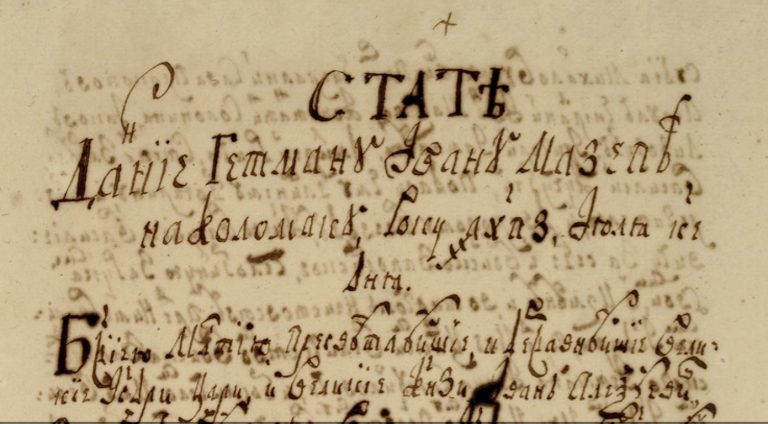 СТАТѢ
Данїе Гетманꙋ Іванꙋ Мазепѣ
на Коломакꙋ, Року ахпз, Іюлѧ ке
днѧ.
Бжїею Млтїю Пресвѣтлѣйшїе, и Державнѣйшїе Вели-
кіе Гсдри Цари, и Великіе Кнзи, Іванъ Алеѯѣевич,